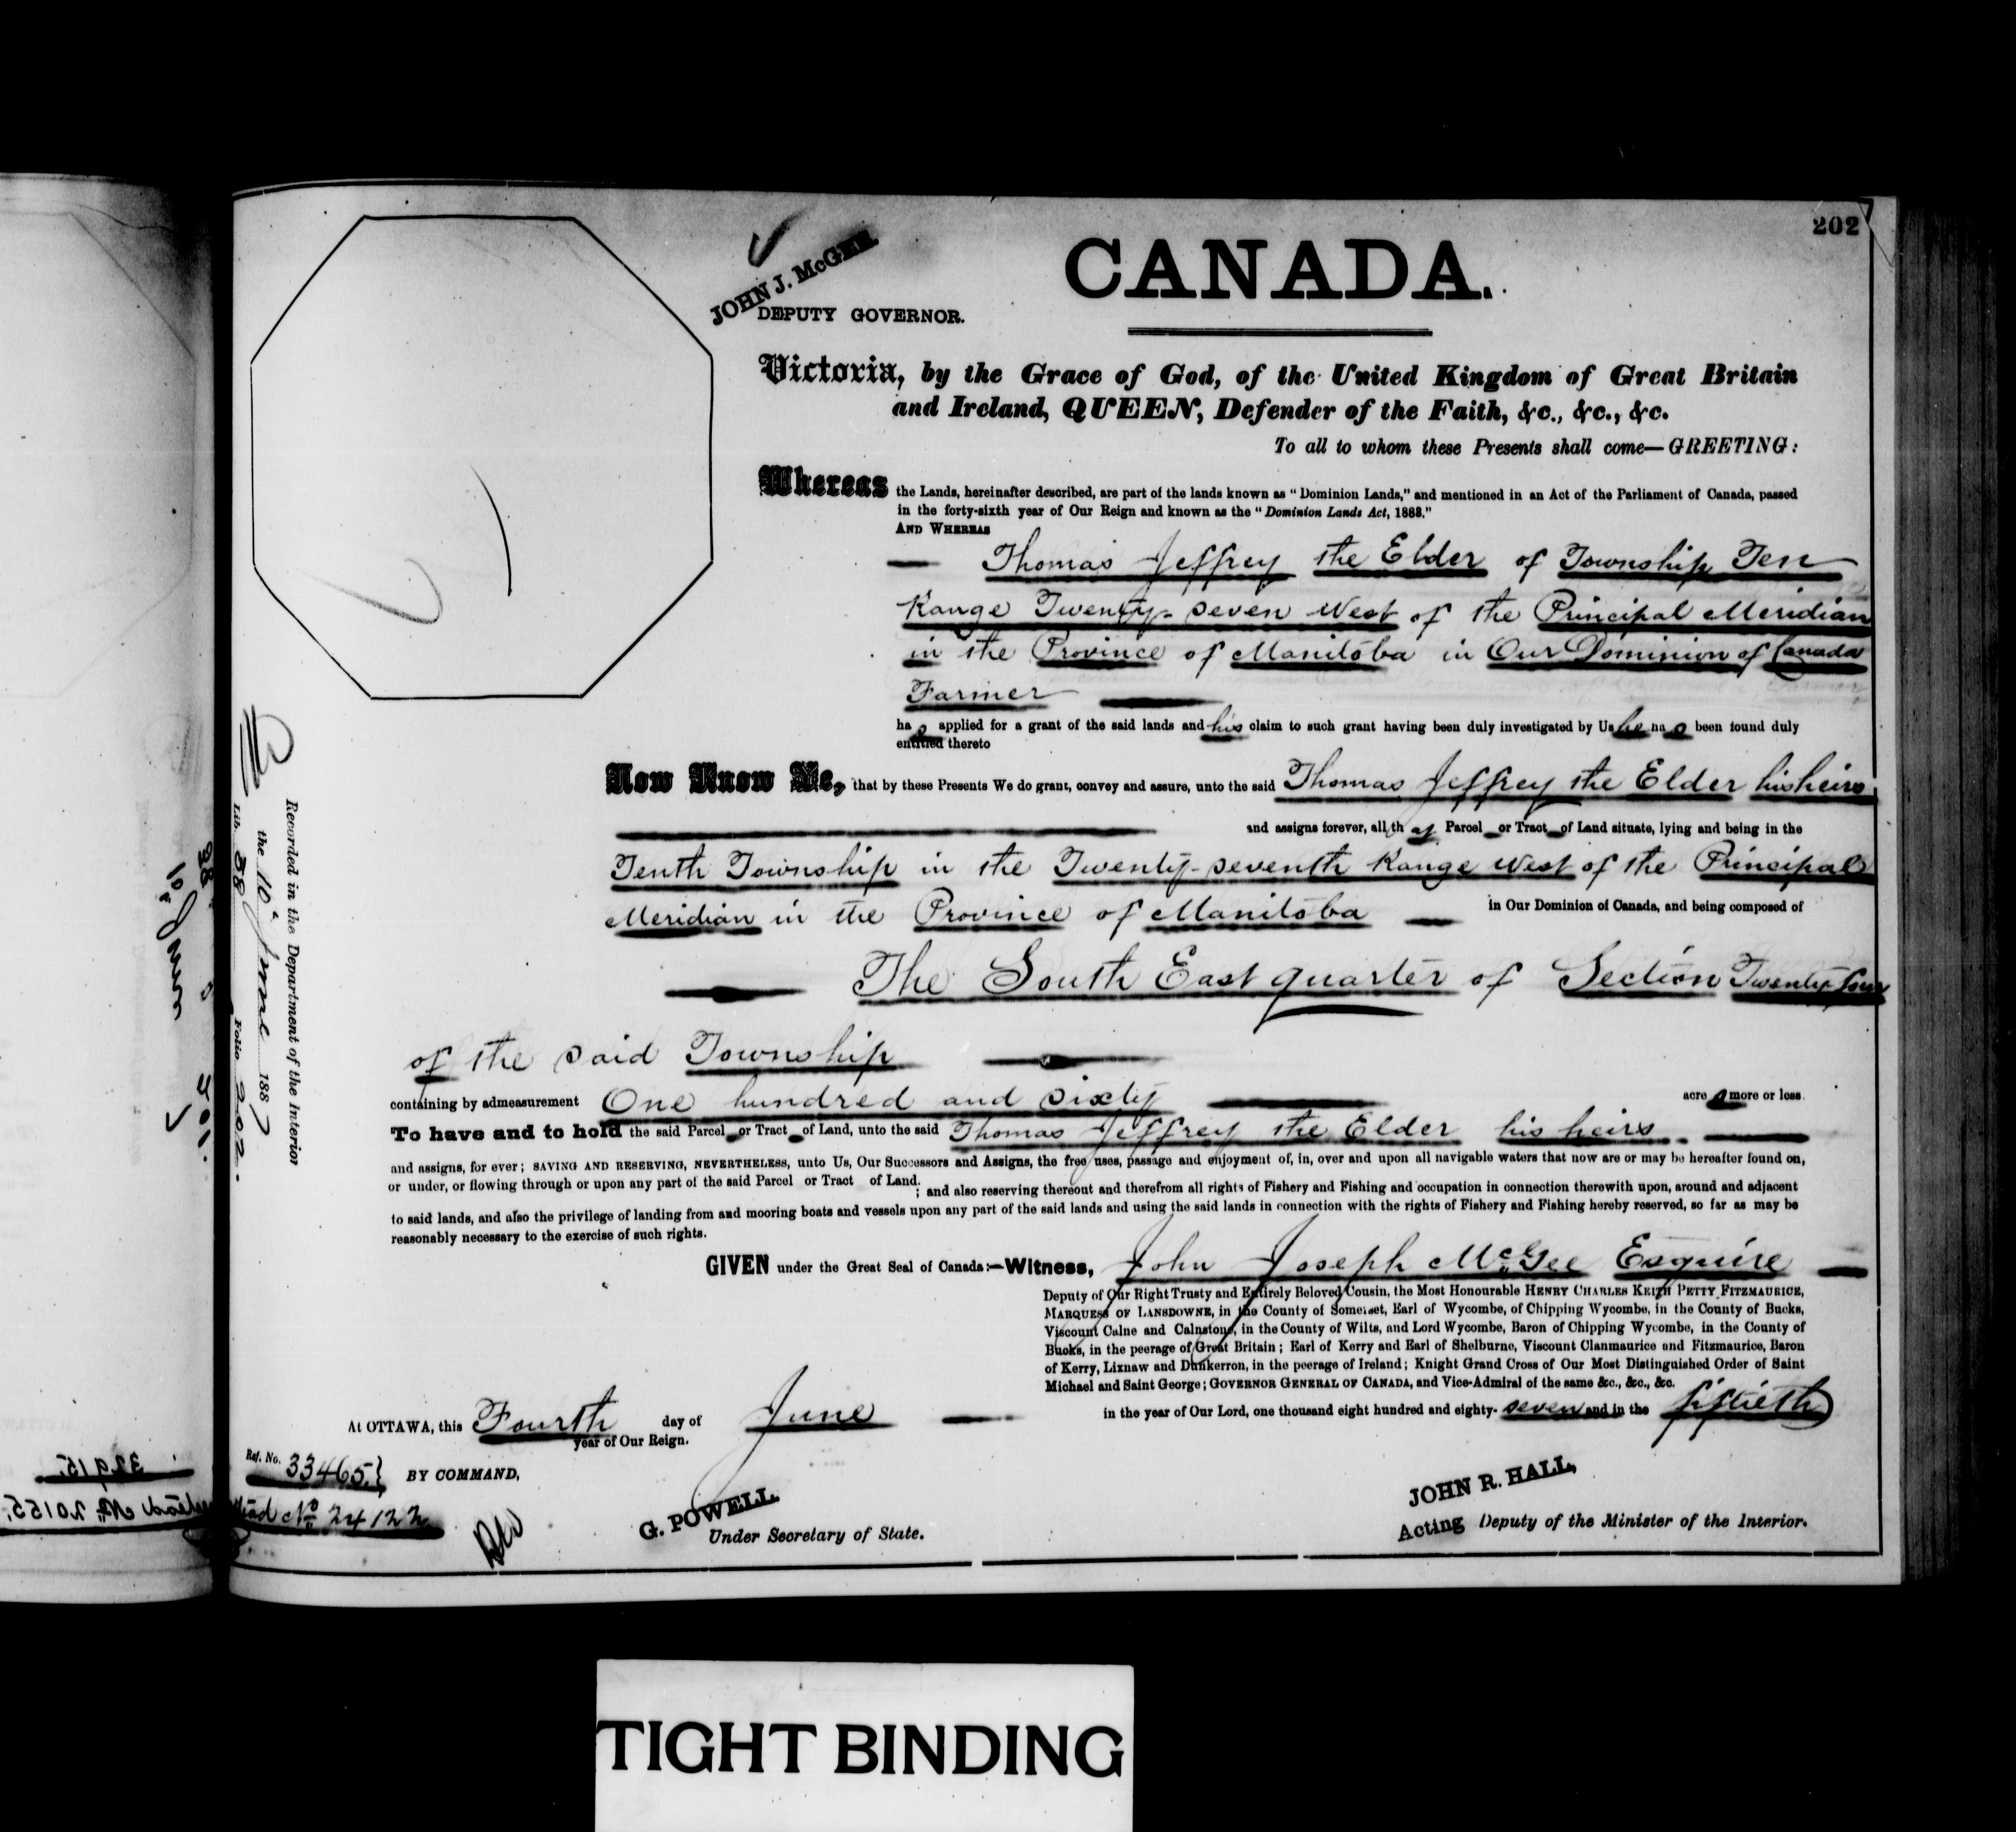 202
JOHN J. McGEE
DEPUTY GOVERNOR.
CANADA.
Victoria, by the Grace of God, of the United Kingdom of Great Britain
and Ireland, QUEEN, Defender of the Faith, &c., &c., &c.
To all to whom these Presents shall come—GREETING:
Whereas the Lands, hereinafter described, are part of the lands known as "Dominion Lands," and mentioned in an Act of the Parliament of Canada, passed
in the forty-sixth year of Our Reign and known as the "Dominion Lands Act, 1883."
AND WHEREAS
Thomas Jeffrey the Elder of Township Ten
Range Twenty-seven West of the Principal Meridian
in the Province of Manitoba in Our Dominion of Canada
Farmer
has applied for a grant of the said lands and his claim to such grant having been duly investigated by Us he has been found duly
entitled thereto
Now Know Ye, that by these Presents We do grant, convey and assure, unto the said Thomas Jeffrey the Elder his heirs
and assigns forever, all that Parcel or Tract of Land situate, lying and being in the
Tenth Township in the Twenty-seventh Range West of the Principal
Meridian in the Province of Manitoba in Our Dominion of Canada, and being composed of
The South East quarter of Section Twenty four
of the said Township
containing by admeasurement One hundred and sixty acres more or less.
To have and to hold the said Parcel or Tract of Land, unto the said Thomas Jeffrey the Elder his heirs
and assigns, for ever; SAVING AND RESERVING, NEVERTHELESS, unto Us, Our Successors and Assigns, the free uses, passage and enjoyment of, in, over and upon all navigable waters that now are or may be hereafter found on,
or under, or flowing through or upon any part of the said Parcel or Tract of Land.; and also reserving thereout and therefrom all rights of Fishery and Fishing and occupation in connection therewith upon, around and adjacent
to said lands, and also the privilege of landing from and mooring boats and vessels upon any part of the said lands and using the said lands in connection with the rights of Fishery and Fishing hereby reserved, so far as may be
reasonably necessary to the exercise of such rights.
GIVEN under the Great Seal of Canada:—Witness, John Joseph McGee Esquire
Deputy of Our Right Trusty and Entirely Beloved Cousin, the Most Honourable HENRY CHARLES KEITH PETTY FITZMAURICE,
MARQUESS OF LANSDOWNE, in the County of Somerset, Earl of Wycombe, of Chipping Wycombe, in the County of Bucks,
Viscount Calne and Calnstone, in the County of Wilts, and Lord Wycombe, Baron of Chipping Wycombe, in the County of
Bucks, in the peerage of Great Britain; Earl of Kerry and Earl of Shelburne, Viscount Clanmaurice and Fitzmaurice, Baron
of Kerry, Lixnaw and Dunkerron, in the peerage of Ireland; Knight Grand Cross of Our Most Distinguished Order of Saint
Michael and Saint George; GOVERNOR GENERAL OF CANADA, and Vice-Admiral of the same &c., &c., &c.
At OTTAWA, this Fourth day of June in the year of Our Lord, one thousand eight hundred and eighty-seven and in the fiftieth
year of Our Reign.
Ref. No. 33465.} BY COMMAND,
tead No 24122
G. POWELL.
Under Secretary of State.
JOHN R. HALL,
Acting Deputy of the Minister of the Interior.
Recorded in the Department of the Interior
the 10" June 1887
Lib. 38 Folio 202.
TIGHT BINDING